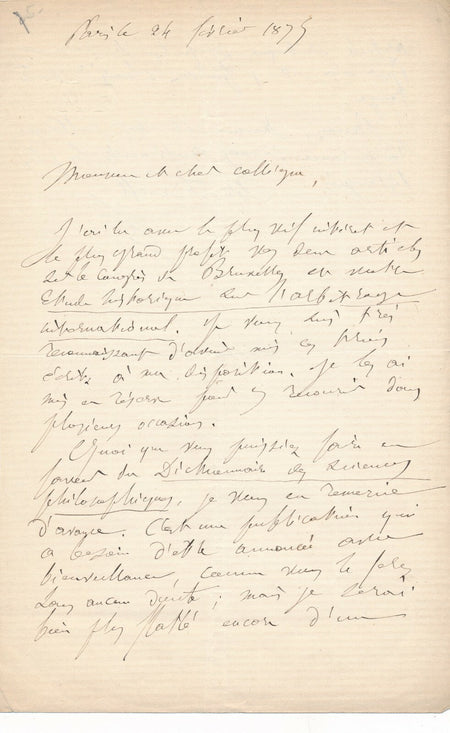 Paris le 24 février 1875
Monsieur et cher collègue,
J'ai lu avec le plus vif intérêt et
le plus grand profit vos deux articles
sur le Congrès de Bruxelles et votre
Etude historique sur l'arbitrage
international. Je vous suis très
reconnaissant d'avoir mis ces
écrits à ma disposition. Je les ai
mis en réserve pour y recourir dans
plusieurs occasions.
Quoi que vous puissiez faire en
faveur du Dictionnaire des sciences
philosophiques, je vous en remercie
d'avance. C'est une publication qui
a besoin d'être annoncée avec
bienveillance, comme vous le ferez
sans aucun doute ; mais je serai
bien plus flatté encore d'un